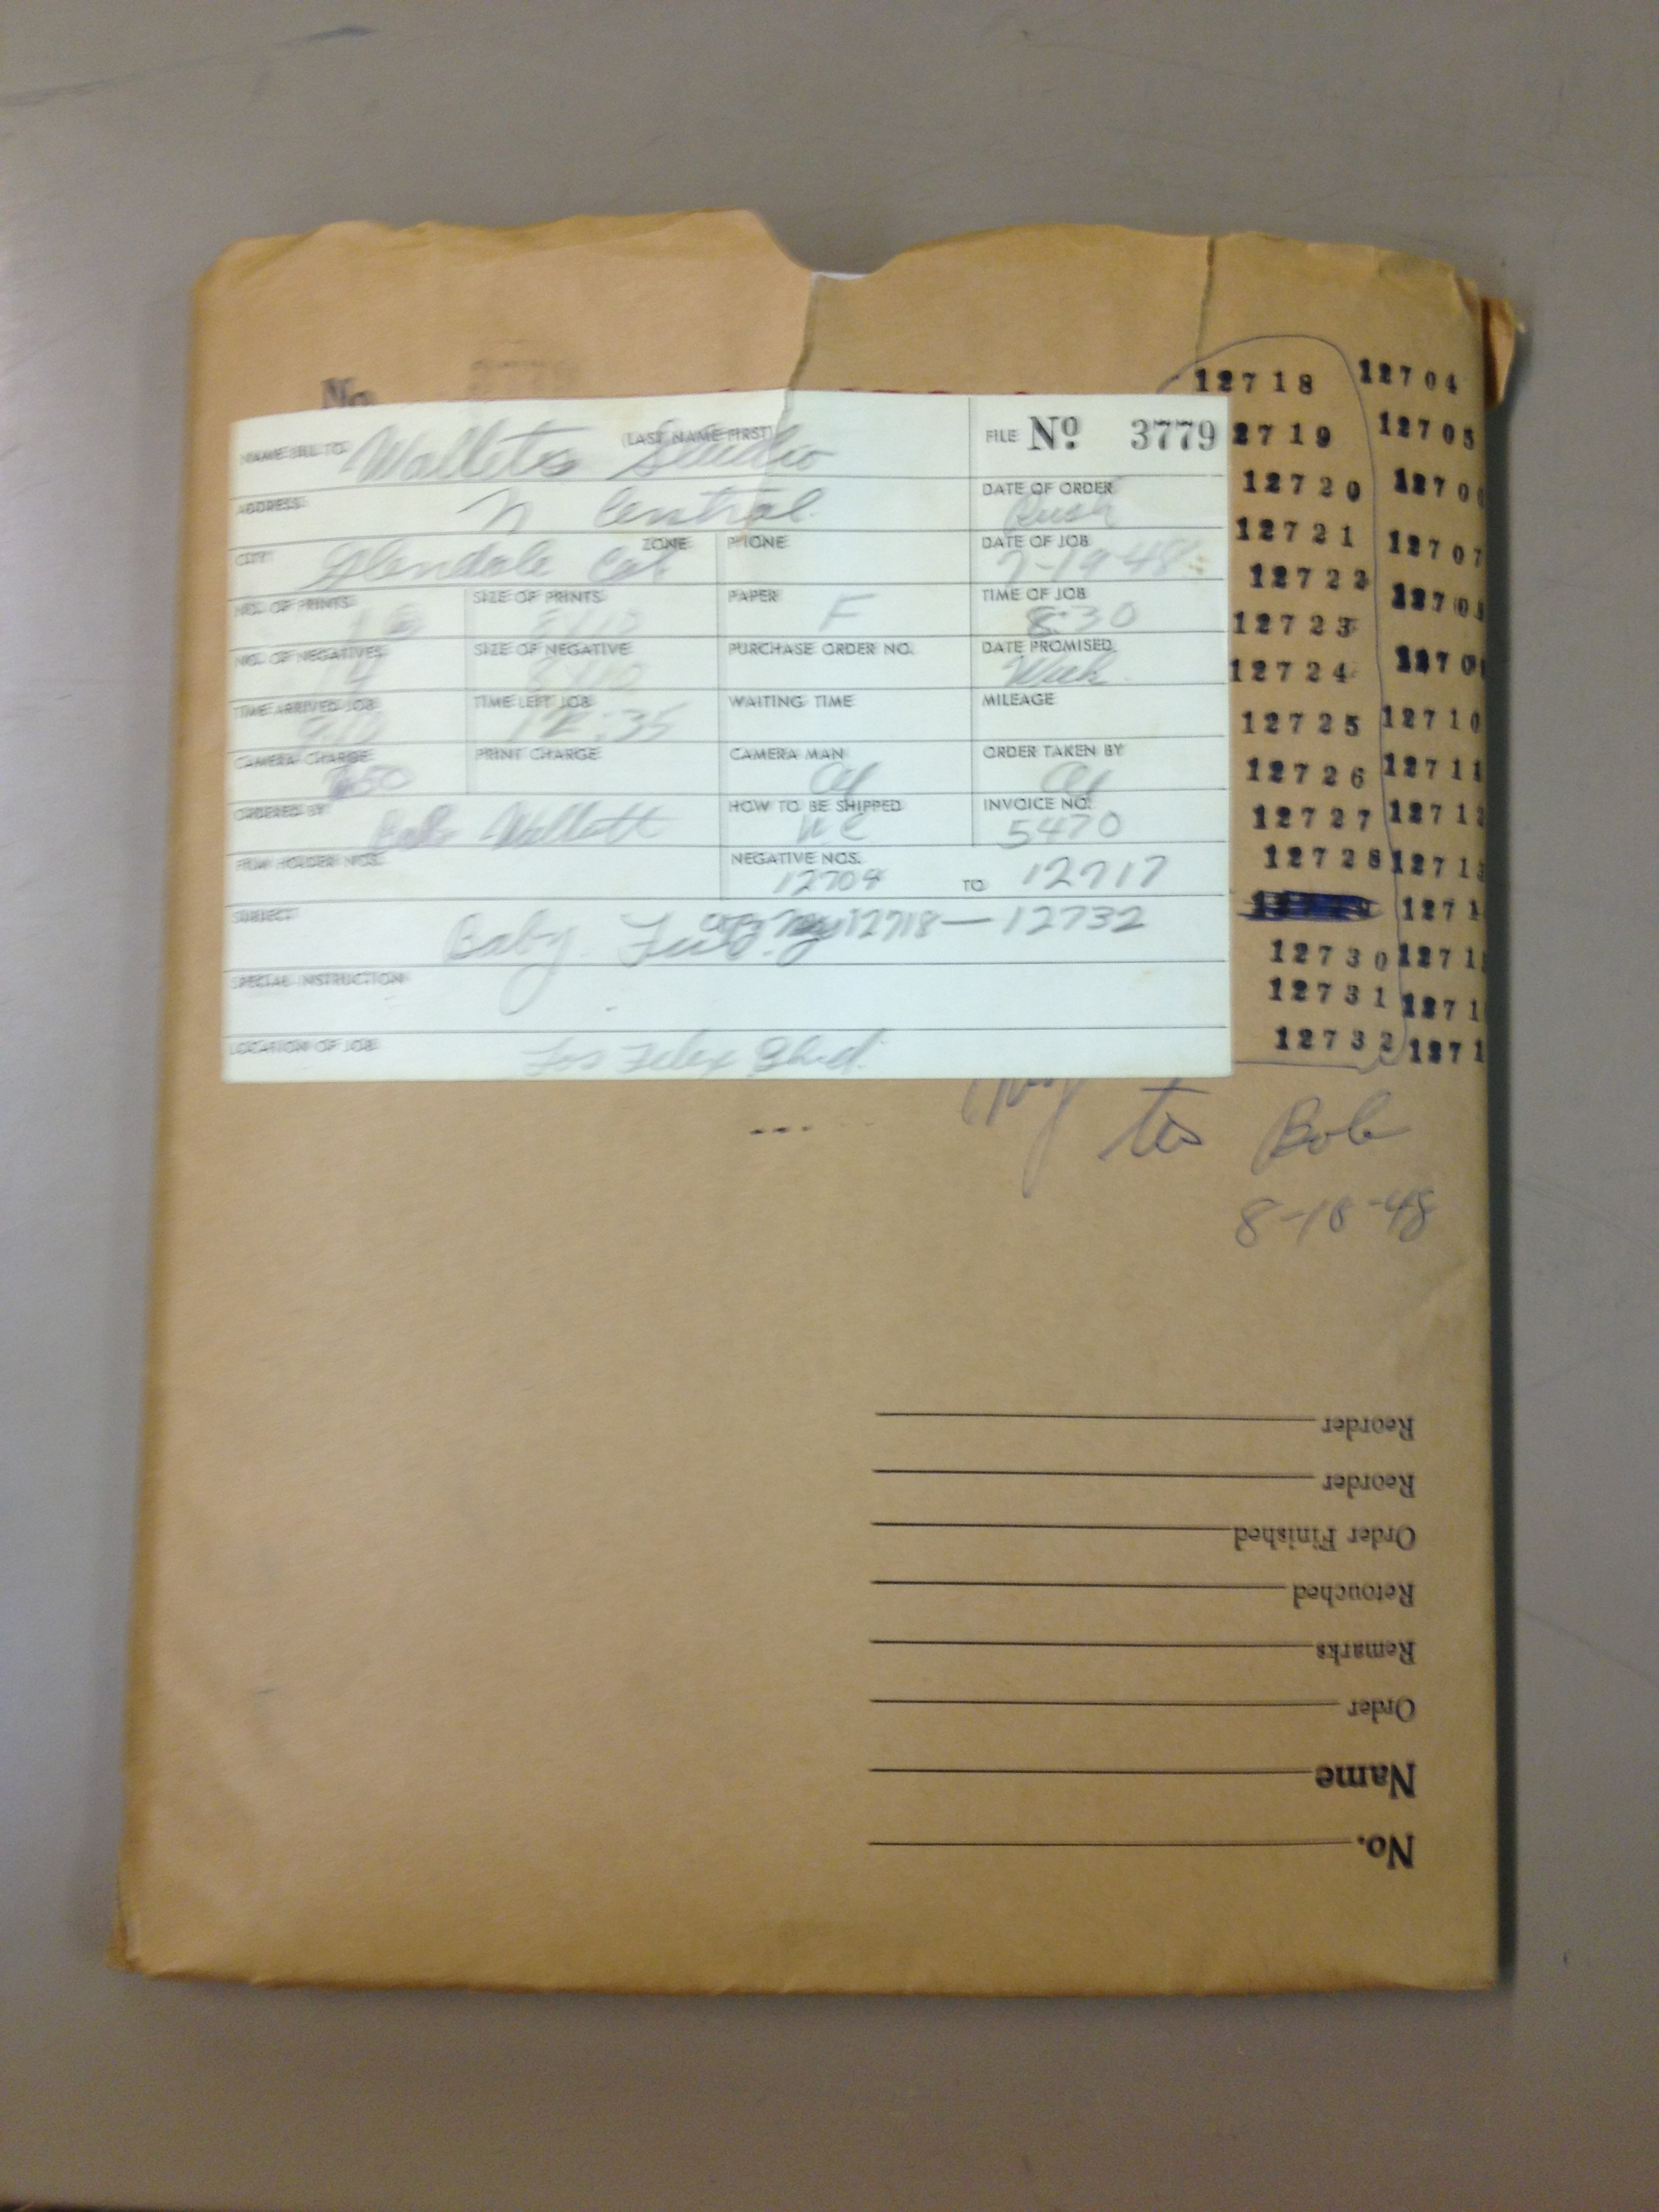 No
NAME BILL TO Walletts Studio (LAST NAME FIRST) FILE No 3779
ADDRESS N Central DATE OF ORDER Rush
CITY Glendale Cal ZONE PHONE DATE OF JOB 7-19-48
NO. OF PRINTS SIZE OF PRINTS 8x10 PAPER F TIME OF JOB 8:30
NO. OF NEGATIVES 14 SIZE OF NEGATIVE 8x10 PURCHASE ORDER NO. DATE PROMISED
TIME ARRIVED JOB TIME LEFT JOB 12:35 WAITING TIME MILEAGE
CAMERA CHARGE PRINT CHARGE CAMERA MAN ORDER TAKEN BY
ORDERED BY Bob Wallett HOW TO BE SHIPPED WC INVOICE NO. 5470
FILM HOLDER NOS. NEGATIVE NOS. 12704 TO 12717
SUBJECT Baby 12718 — 12732
SPECIAL INSTRUCTION
LOCATION OF JOB Los Felex Blvd.
12718
2719
12720
12721
12722
12723
12724
12725
12726
12727
12728
12730
12731
12732
12704
12705
1270
12707
1270
1270
12710
12711
1271
1271
1271
1271
1271
1271
to Bob
8-18-48
Reorder
Reorder
Order Finished
Retouched
Remarks
Order
Name
No.